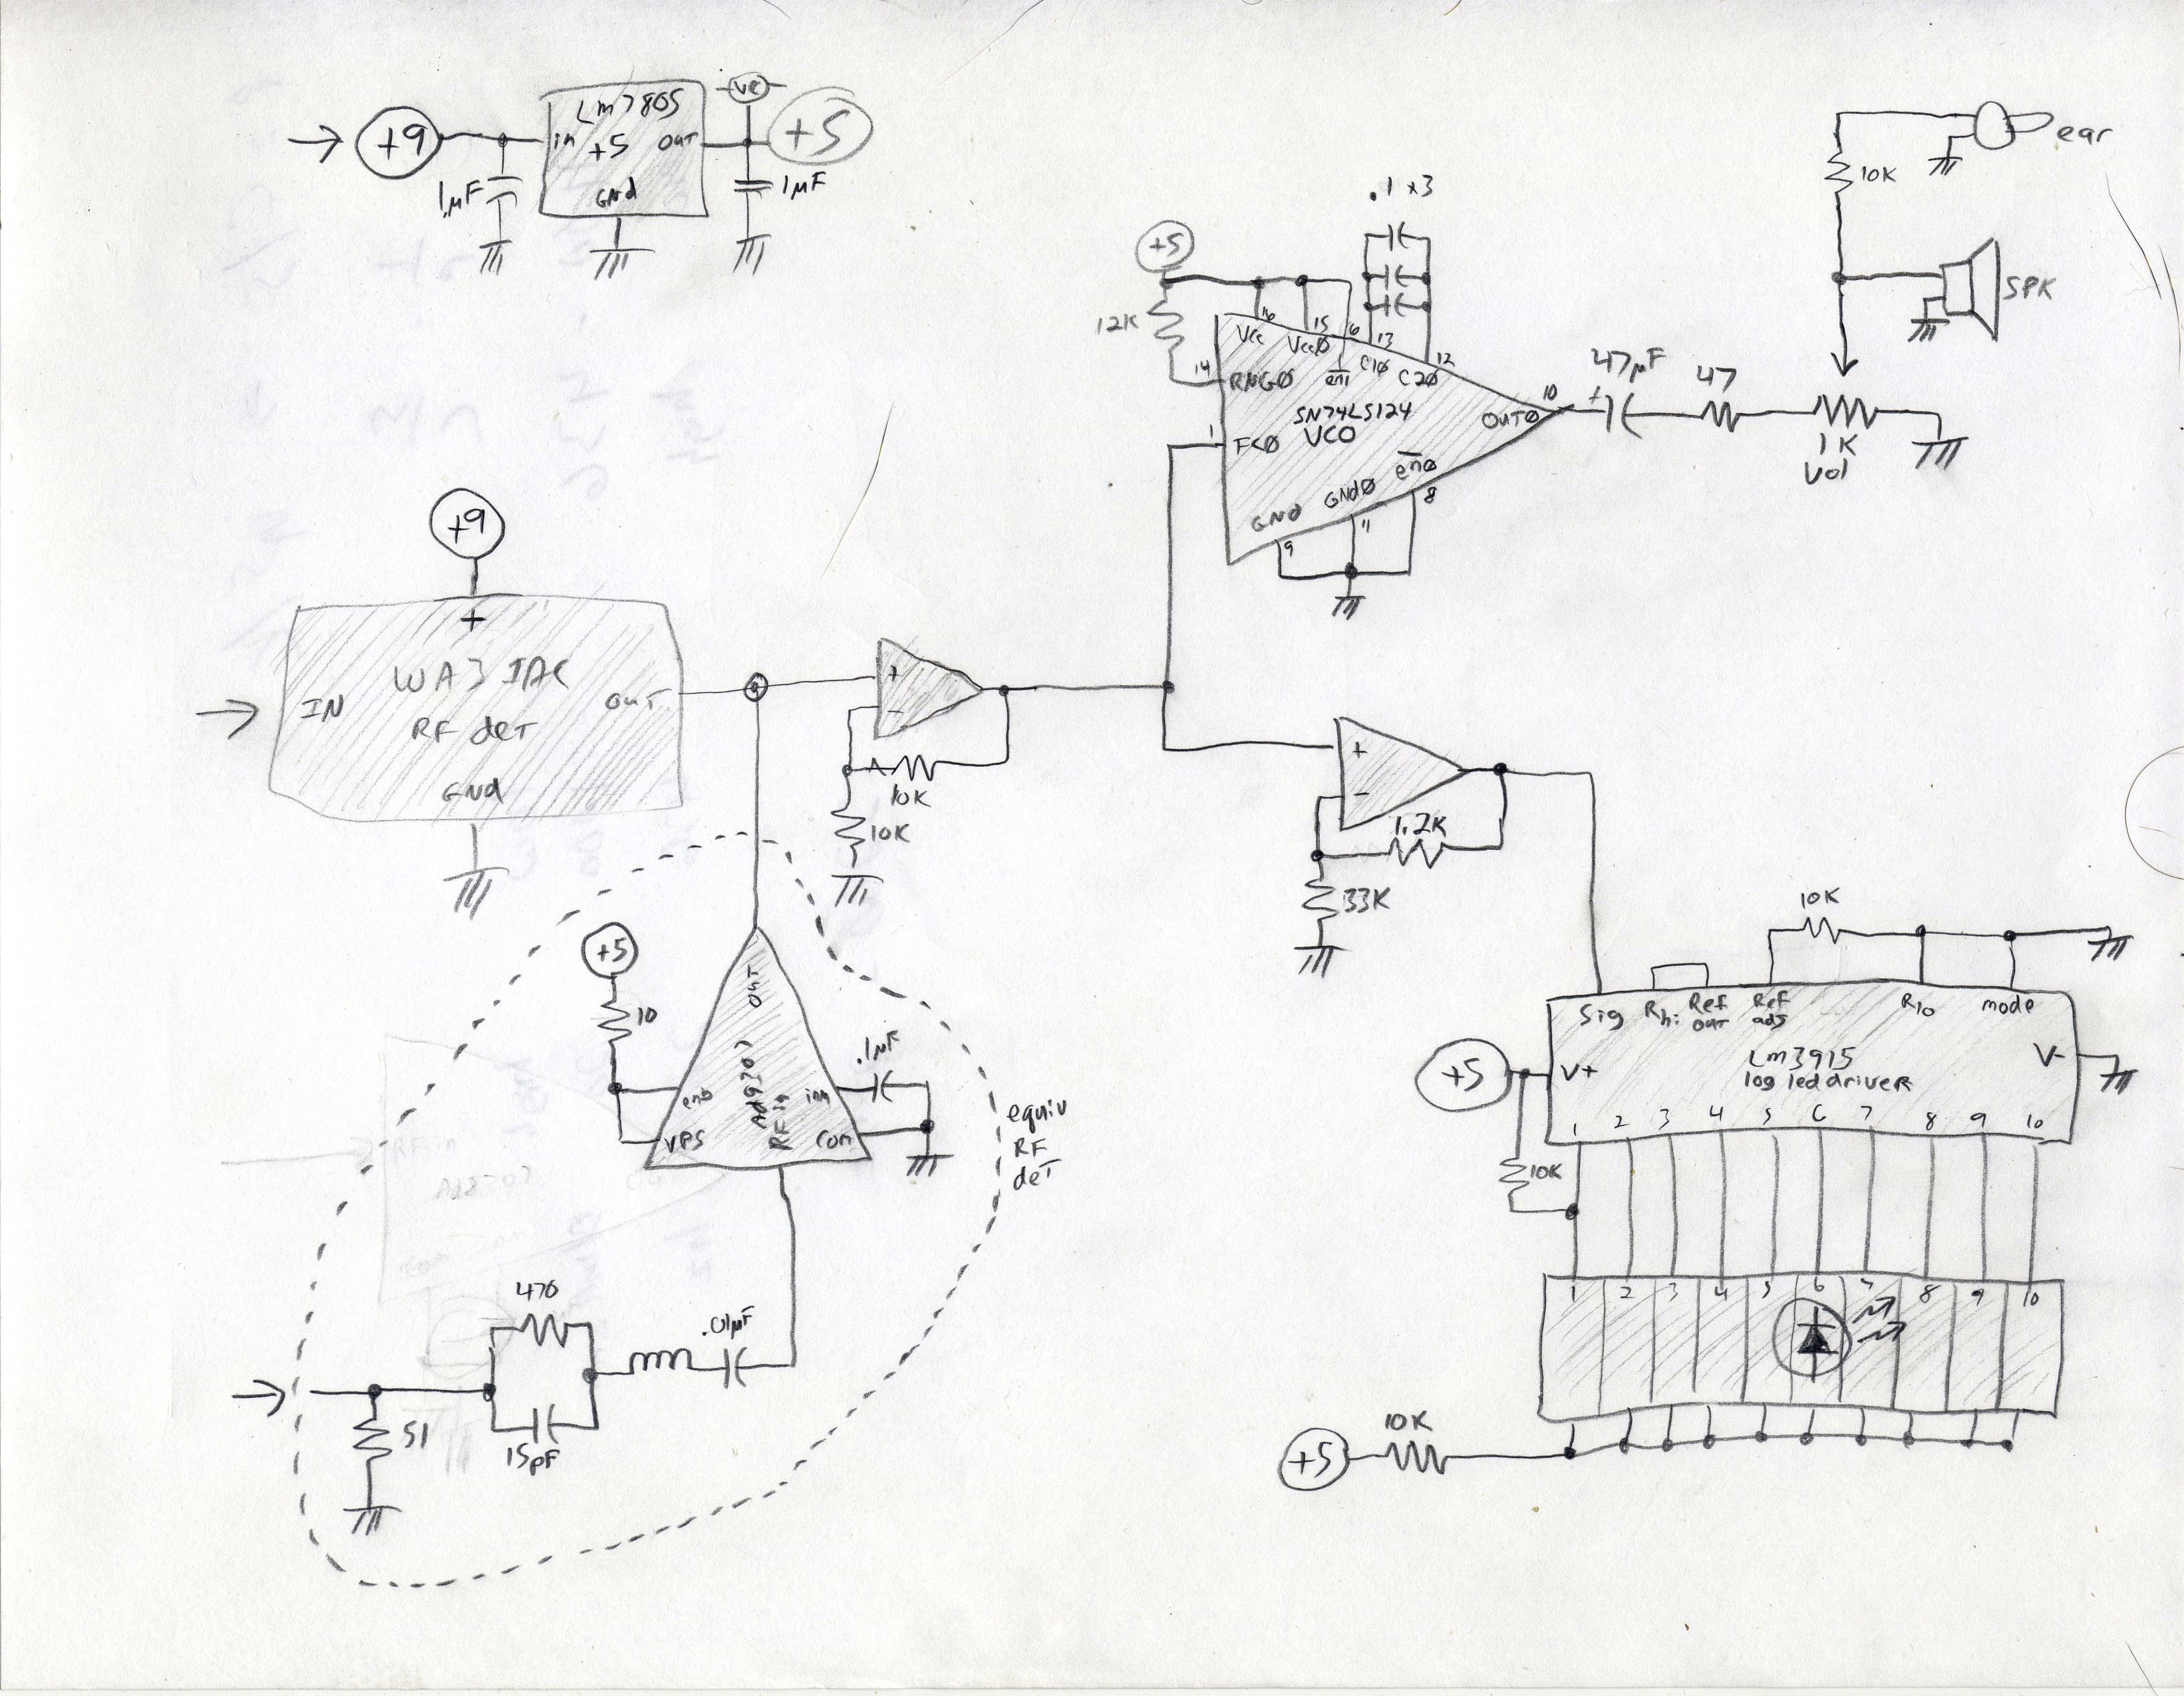 +9
LM7805
in
+5
OUT
GND
1µF
VR
+5
1µF
ear
10K
SPK
.1 x3
+5
12K
16
15
6
13
12
14
Vcc
VccØ
en1
C1Ø
C2Ø
RNGØ
SN74LS124
VCO
1
FCØ
OUTØ
10
enØ
GNDØ
GND
8
11
9
47µF
+
47
1K
Vol
+9
+
WA3IAC
IN
OUT
RF det
GND
+
-
10K
10K
+
-
1.2K
33K
10K
Sig
Rhi
Ref
out
Ref
adj
Rlo
mode
LM3915
log led driver
V+
V-
+5
1 2 3 4 5 6 7 8 9 10
10K
1 2 3 4 5 6 7 8 9 10
+5
10K
+5
10
OUT
enb
VPS
RF in
inm
Com
.1µF
equiv
RF
det
470
.01µF
15pF
51